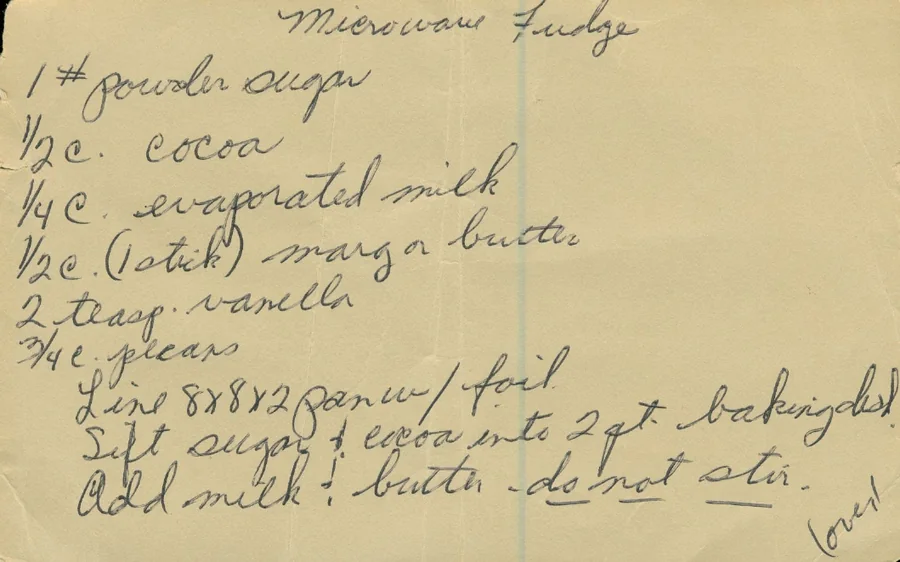 Microwave Fudge
1 # powder sugar
1/2 c. cocoa
1/4 c. evaporated milk
1/2 c. (1 stick) marg or butter
2 teasp. vanilla
3/4 c. pecans
Line 8x8x2 pan w/ foil
Sift sugar & cocoa into 2 qt. baking dish.
Add milk & butter - do not stir.
(over)